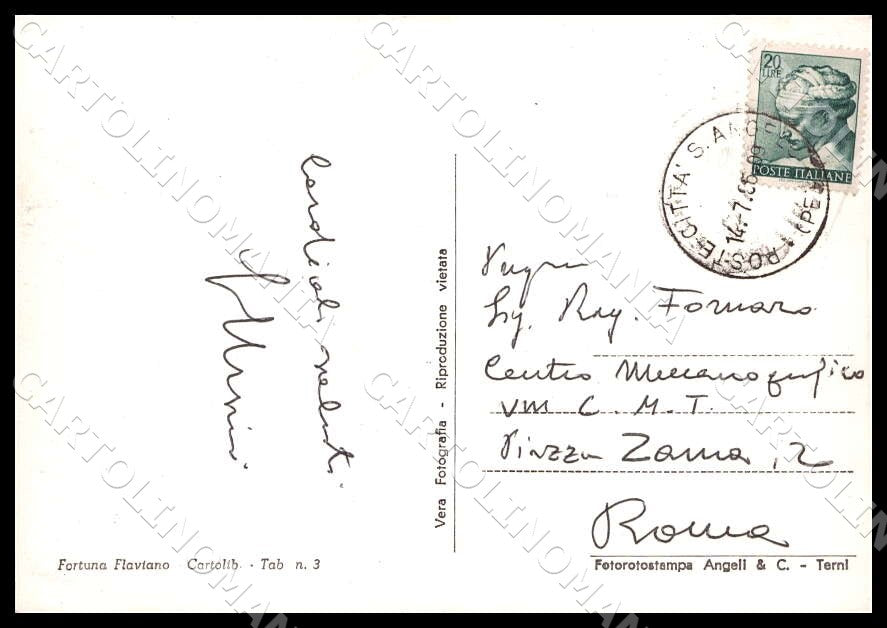 Cordiali saluti
20
LIRE
POSTE ITALIANE
POSTE CITTA' S. ANGELO (PE)
14.7.66
Sig. Rag. Fornaro
Centro Meccanografico
VIII C. M. T.
Piazza Zama, 2
Roma
Vera Fotografia - Riproduzione vietata
Fortuna Flaviano Cartolib. - Tab n. 3
Fotorotostampa Angeli & C. - Terni
CARTOLINOMANIA